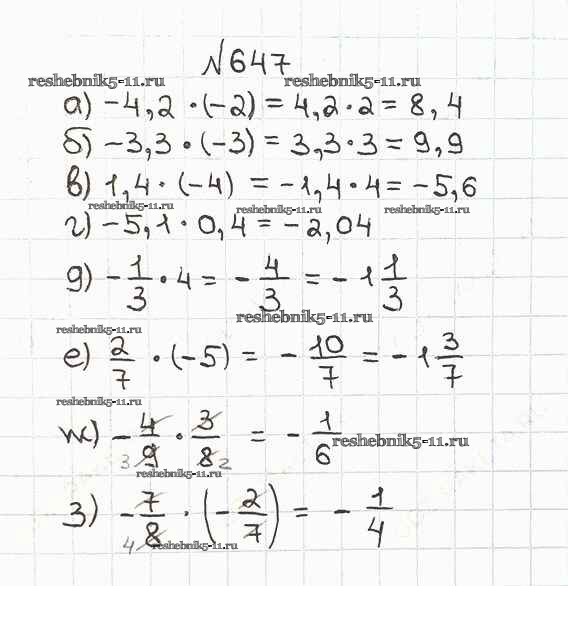 №647
reshebnik5-11.ru reshebnik5-11.ru
а) -4,2 · (-2) = 4,2 · 2 = 8,4
б) -3,3 · (-3) = 3,3 · 3 = 9,9
в) 1,4 · (-4) = -1,4 · 4 = -5,6
reshebnik5-11.ru reshebnik5-11.ru reshebnik5-11.ru
г) -5,1 · 0,4 = -2,04
д) -1/3 · 4 = -4/3 = -1 1/3
reshebnik5-11.ru
reshebnik5-11.ru
е) 2/7 · (-5) = -10/7 = -1 3/7
reshebnik5-11.ru
ж) -4/9 · 3/8 = -1/6
3 2
reshebnik5-11.ru
reshebnik5-11.ru
з) -7/8 · (-2/7) = -1/4
4
reshebnik5-11.ru